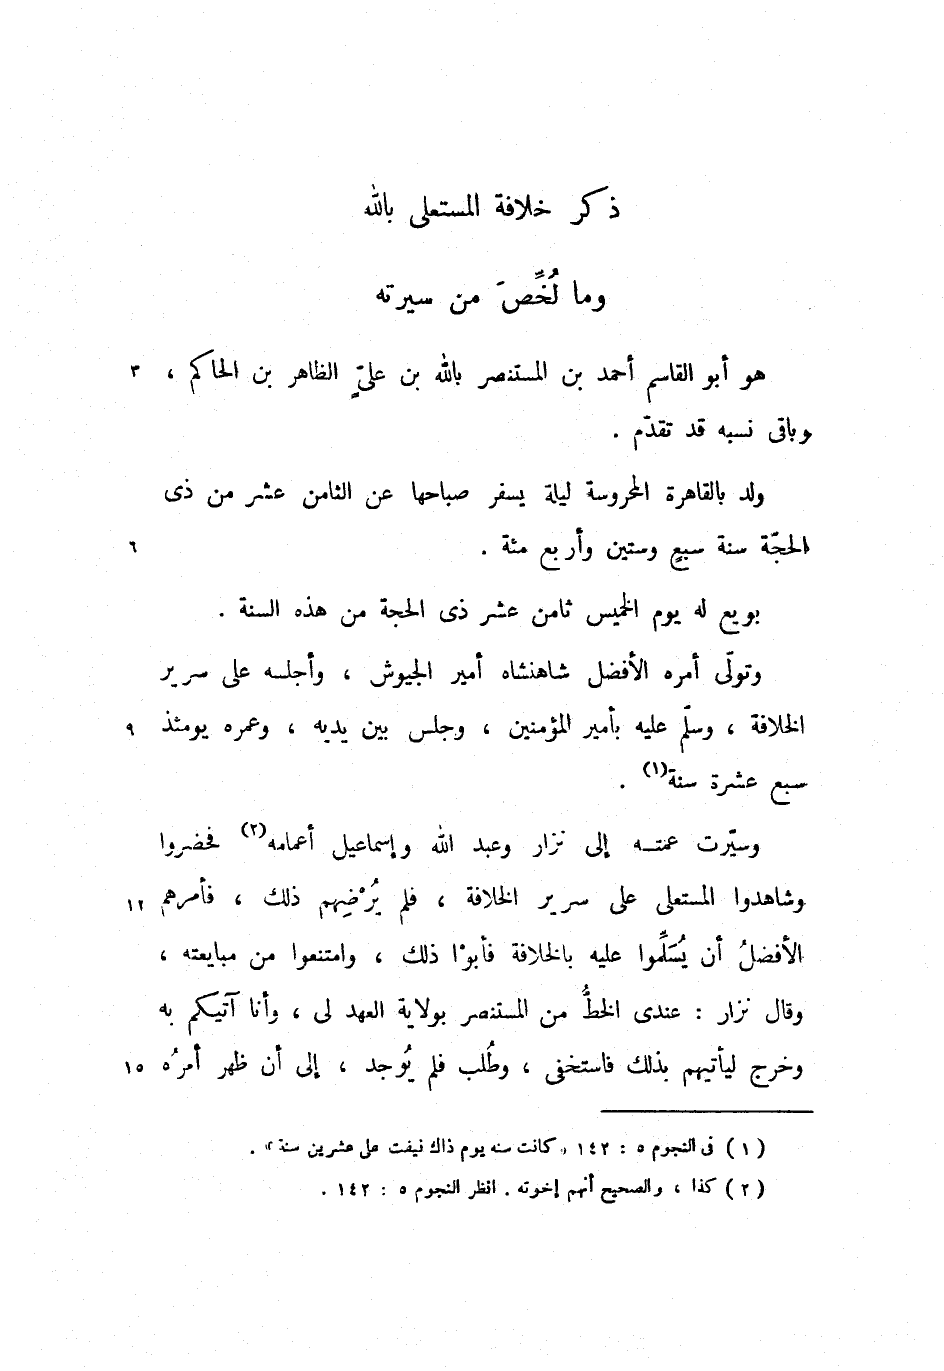 ذكر خلافة المستعلى بالله
وما لُخِّصَ من سيرته
هو أبو القاسم أحمد بن المستنصر بالله بن علىٍّ الظاهر بن الحاكم ، ٣
وباقى نسبه قد تقدّم .
ولد بالقاهرة المحروسة ليلة يسفر صباحها عن الثامن عشر من ذى
الحجّة سنة سبعٍ وستين وأربع مئة . ٦
بويع له يوم الخميس ثامن عشر ذى الحجة من هذه السنة .
وتولّى أمره الأفضل شاهنشاه أمير الجيوش ، وأجلسه على سرير
الخلافة ، وسلّم عليه بأمير المؤمنين ، وجلس بين يديه ، وعمره يومئذ ٩
سبع عشرة سنة(١) .
وسيّرت عمتـه إلى نزار وعبد الله وإسماعيل أعمامه(٢) فحضروا
وشاهدوا المستعلى على سرير الخلافة ، فلم يُرْضِهم ذلك ، فأمرهم ١٢
الأفضلُ أن يُسَلِّموا عليه بالخلافة فأبوْا ذلك ، وامتنعوا من مبايعته ،
وقال نزار : عندى الخطُّ من المستنصر بولاية العهد لى ، وأنا آتيكم به
وخرج ليأتيهم بذلك فاستخفى ، وطُلب فلم يُوجد ، إلى أن ظهر أمرُه ١٥
(١) فى النجوم ٥ : ١٤٢ «كانت سنه يوم ذاك نيفت على عشرين سنة» .
(٢) كذا ، والصحيح أنهم إخوته . انظر النجوم ٥ : ١٤٢ .